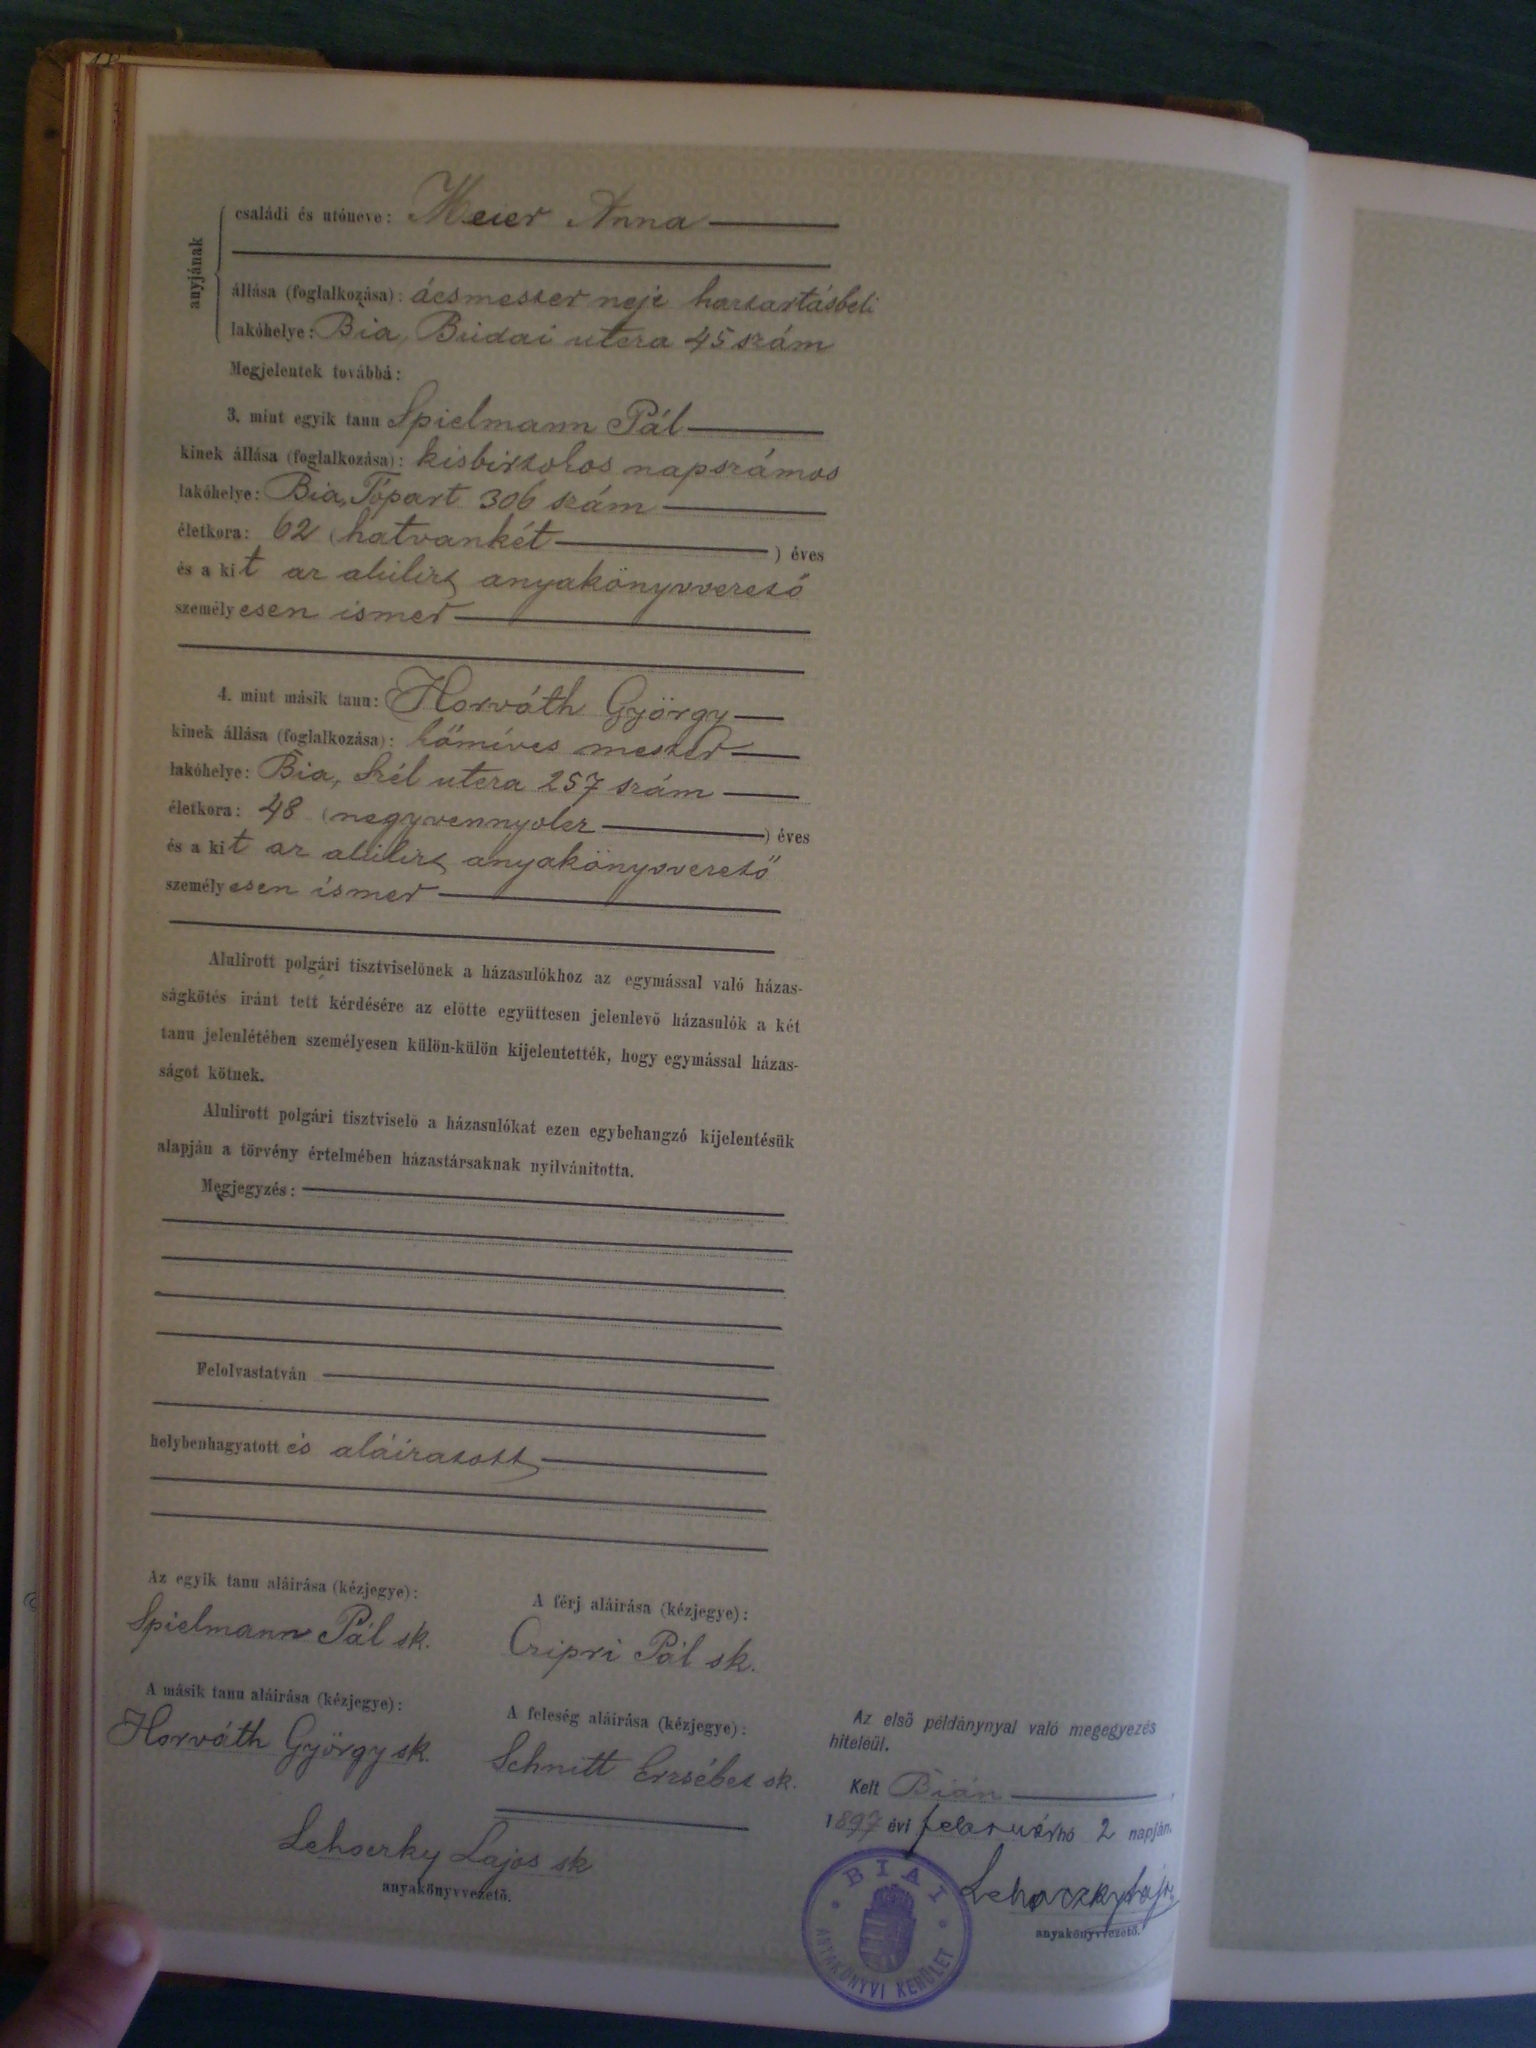 anyjának
családi és utóneve: Meier Anna
állása (foglalkozása): ácsmester neje háztartásbeli
lakóhelye: Bia, Budai utcza 45 szám
Megjelentek továbbá:
3. mint egyik tanu Spielmann Pál
kinek állása (foglalkozása): kisbirtokos napszámos
lakóhelye: Bia, Tópart 306 szám
életkora: 62 (hatvankét ) éves
és a kit az alulirt anyakönyvvezető
személyesen ismer
4. mint másik tanu: Horváth György
kinek állása (foglalkozása): kőmíves mester
lakóhelye: Bia, Szél utcza 257 szám
életkora: 48 (negyvennyolcz ) éves
és a kit az alulirt anyakönyvvezető
személyesen ismer
Alulirott polgári tisztviselőnek a házasulókhoz az egymással való házas-
ságkötés iránt tett kérdésére az előtte együttesen jelenlevő házasulók a két
tanu jelenlétében személyesen külön-külön kijelentették, hogy egymással házas-
ságot kötnek.
Alulirott polgári tisztviselő a házasulókat ezen egybehangzó kijelentésük
alapján a törvény értelmében házastársaknak nyilvánitotta.
Megjegyzés:
Felolvastatván
helybenhagyatott és aláiratott
Az egyik tanu aláirása (kézjegye):
Spielmann Pál sk.
A férj aláirása (kézjegye):
Czipri Pál sk.
A másik tanu aláirása (kézjegye):
Horváth György sk.
A feleség aláirása (kézjegye):
Schnitt Erzsébet sk.
Lehoczky Lajos sk
anyakönyvvezető.
Az első példánynyal való megegyezés
hiteléül.
Kelt Bián
1897 évi február hó 2 napján.
Lehoczky Lajos
anyakönyvvezető.
BIAI
ANYAKÖNYVI KERÜLET